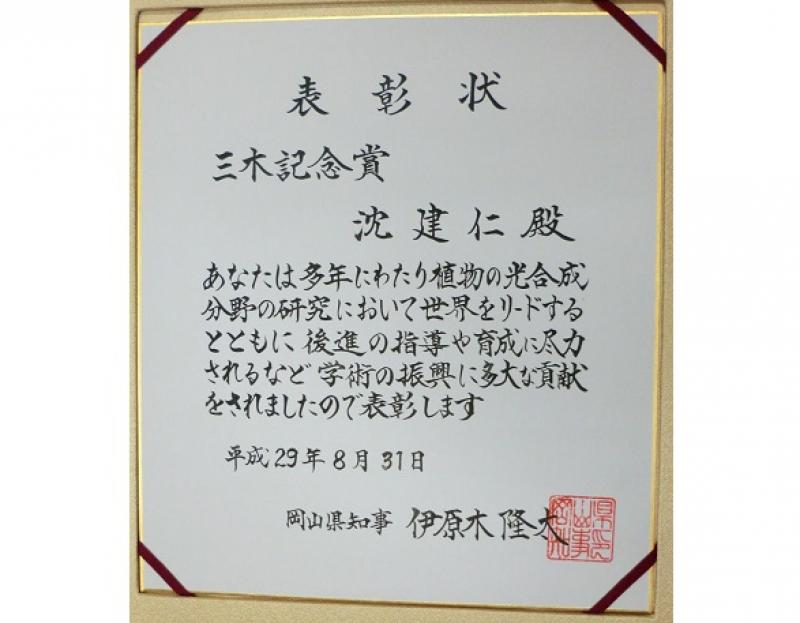 表彰状
三木記念賞
沈建仁殿
あなたは多年にわたり植物の光合成
分野の研究において世界をリードする
とともに後進の指導や育成に尽力
されるなど学術の振興に多大な貢献
をされましたので表彰します
平成29年8月31日
岡山県知事 伊原木隆太